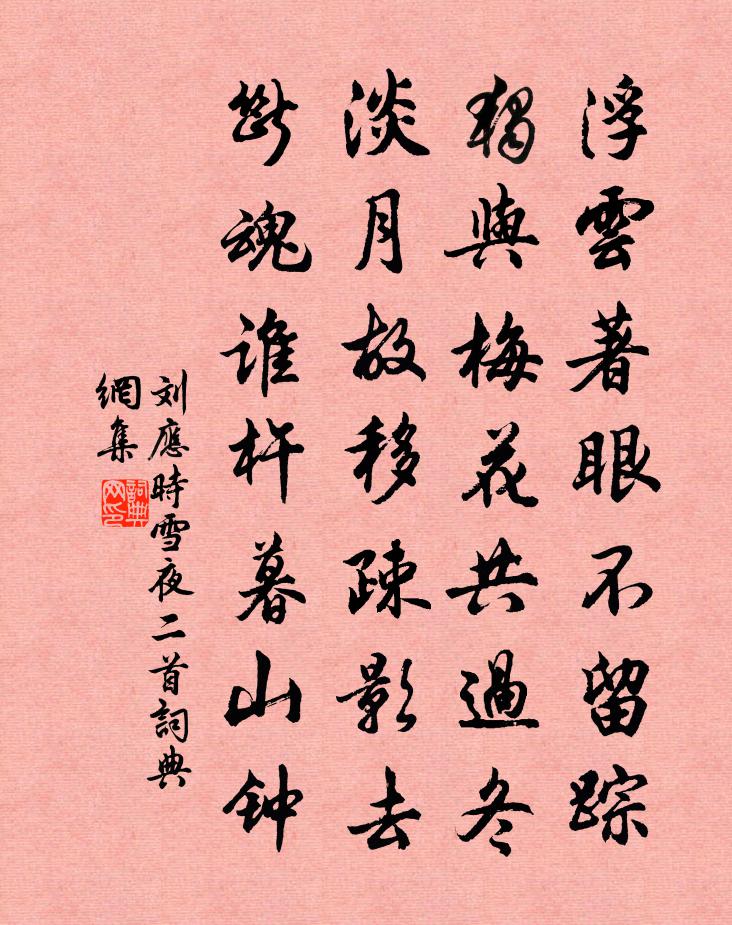 浮雲著眼不留踪
獨與梅花共過冬
淡月故移疎影去
斷魂誰杵暮山钟
刘應時雪夜二首詞典
網集
詞典
网印